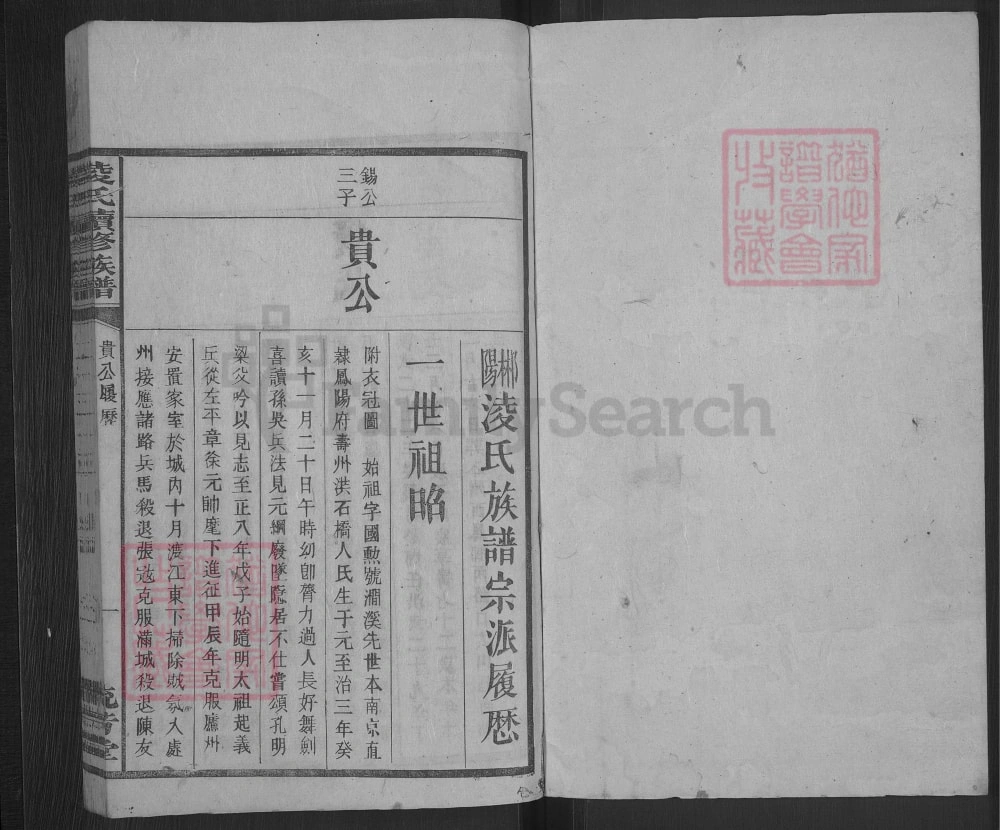 猶他家
譜學會
收藏
FamilySearch
郴陽淩氏族譜宗派履歷
一世祖昭
附衣冠圖 始祖字國勲號澗溪先世本南京直
隸鳳陽府壽州洪石橋人氏生于元至治三年癸
亥十一月二十日午時幼卽膂力過人長好舞劍
喜讀孫吳兵法見元綱廢墜隱居不仕嘗頌孔明
梁父吟以見志至正八年戊子始隨明太祖起義
兵從左平章徐元帥麾下進征甲辰年克服廬州
安置家室於城內十月渡江東下掃除賊氛入處
州接應諸路兵馬殺退張冦克服滿城殺退陳友
錫公
三子
貴公
淩氏續修族譜
貴公履歷
一